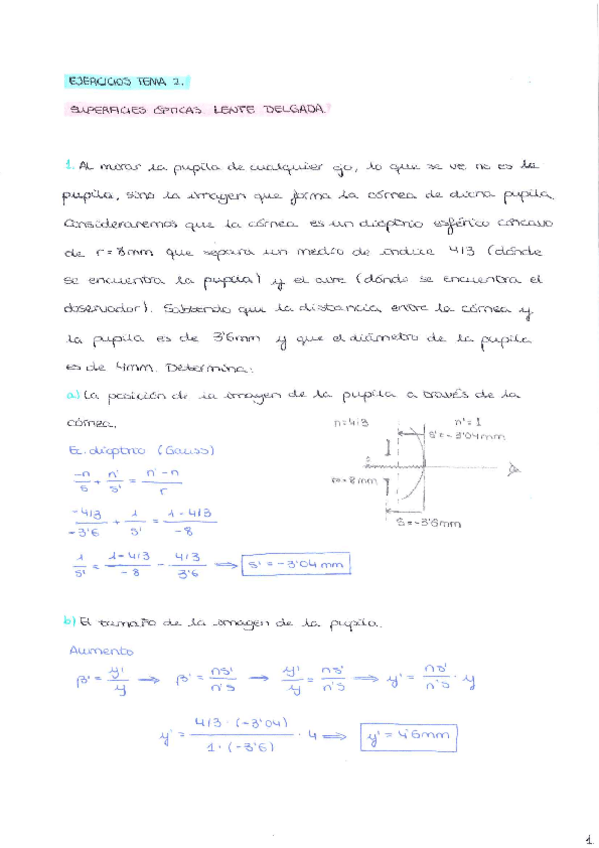 EJERCICIOS TEMA 2.
SUPERFICIES ÓPTICAS. LENTE DELGADA.
1. Al mirar la pupila de cualquier ojo, lo que se ve no es la
pupila, sino la imagen que forma la córnea de dicha pupila.
Consideraremos que la córnea es un dioptrio esférico cóncavo
de r=8mm que separa un medio de índice 4/3 (dónde
se encuentra la pupila) y el aire (dónde se encuentra el
observador). Sabiendo que la distancia entre la córnea y
la pupila es de 3'6mm y que el diámetro de la pupila
es de 4mm. Determina:
a) La posición de la imagen de la pupila a través de la
córnea.
n=4/3 n'=1
s'=-3'04mm
r=-8mm
s=-3'6mm
Ec. dioptrio (Gauss)
-n/s + n'/s' = n'-n/r
-4/3/-3'6 + 1/s' = 1-4/3/-8
1/s' = 1-4/3/-8 - 4/3/3'6 ⟹ s'=-3'04mm
b) El tamaño de la imagen de la pupila.
Aumento
β'= y'/y → β'= ns'/n's → y'/y = ns'/n's ⟹ y'= ns'/n's · y
y'= 4/3·(-3'04)/1·(-3'6) · 4 ⟹ y'=4'6mm
1.